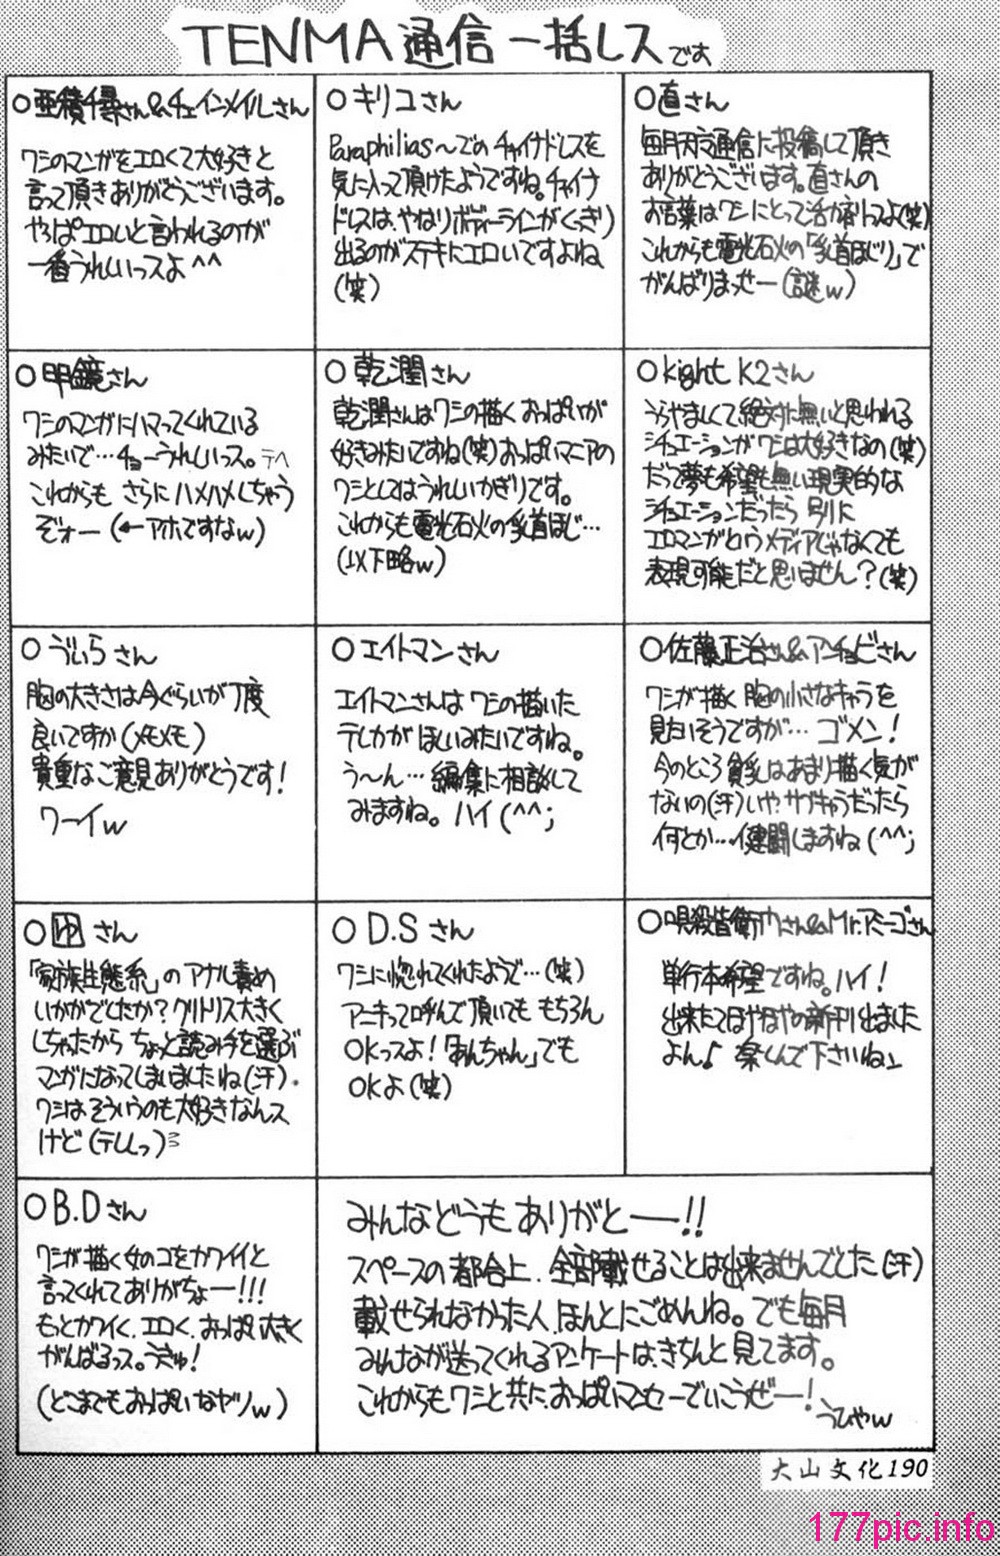 TENMA通信一括レスです
○亜積千尋さん&チェインメイルさん
ワシのマンガをエロくて大好きと
言って頂きありがとうございます。
やっぱエロいと言われるのが
一番うれしいっスよ^^
○キリコさん
Paraphilias〜でのチャイナドレスを
気に入って頂けたようですね。チャイナ
ドレスは、やはりボディーラインがくっきり
出るのがステキにエロいですよね
(笑)
○直さん
毎月天交通信に投稿して頂き
ありがとうございます。直さんの
お言葉はワシにとって活力剤トスよ(笑)
これからも電光石火の「乳首ほじり」で
がんばりまっせー(謎w)
○明鏡さん
ワシのマンガにハマってくれている
みたいで…チョーうれしいっス。テヘ
これからも さらにハメハメしちゃう
ぞォー(←アホですなw)
○乾潤さん
乾潤さんはワシの描くおっぱいが
好きみたいですね(笑)おっぱいマニアの
ワシとしてはうれしいかぎりです。
これからも電光石火の乳首ほじ…
(以下略w)
○kight K2さん
うらやましくて絶対に無いと思われる
シチュエーションがワシは大好きなの(笑)
だって夢も希望も無い現実的な
シチュエーションだったら別に
エロマンガというメディアじゃなくても
表現可能だと思いません?(笑)
○ゔぃらさん
胸の大きさは今ぐらいが丁度
良いですか(メモメモ)
貴重なご意見ありがとうです!
ワーイw
○エイトマンさん
エイトマンさんはワシの描いた
テレカがほしいみたいですね。
う〜ん…編集に相談して
みますね。ハイ(^^;
○佐藤正治さん&アンチョビさん
ワシが描く胸の小さなキャラを
見たいそうですが…ゴメン!
今のところ貧乳はあまり描く気が
ないの(汗)いや、サブキャラだったら
何とか…イ健闘しますね(^^;
○ゆさん
「家族生態系」のアナル責め
いかがでしたか?クリトリス大きく
しちゃったからちょっと読み手を選ぶ
マンガになってしまいましたね(汗)。
ワシはそういうのも大好きなんス
けど(テレっ)
○D.Sさん
ワシに惚れてくれたようで…(笑)
アニキって呼んで頂いてももちろん
OKっスよ!「あんちゃん」でも
OKよ(笑)
○呪殺皆衛門さん&Mr.アミーゴさん
単行本希望ですね。ハイ!
出来たてほやほやの新刊出ました
よん♪楽しんで下さいね」
○B.Dさん
ワシが描く女のコをカワイイと
言ってくれてありがちょー!!!
もっとカワイく、エロく、おっぱい大きく
がんばるっス。うきゅ!
(どこまでもおっぱいなヤツw)
みんなどうもありがとー!!
スペースの都合上、全部載せることは出来ませんでした(汗)
載せられなかった人、ほんとにごめんね。でも毎月
みんなが送ってくれるアンケートは、きちんと見てます。
これからもワシと共に、おっぱいマンセーでいこうぜー!
うひゃw
大山文化190
177pic.info